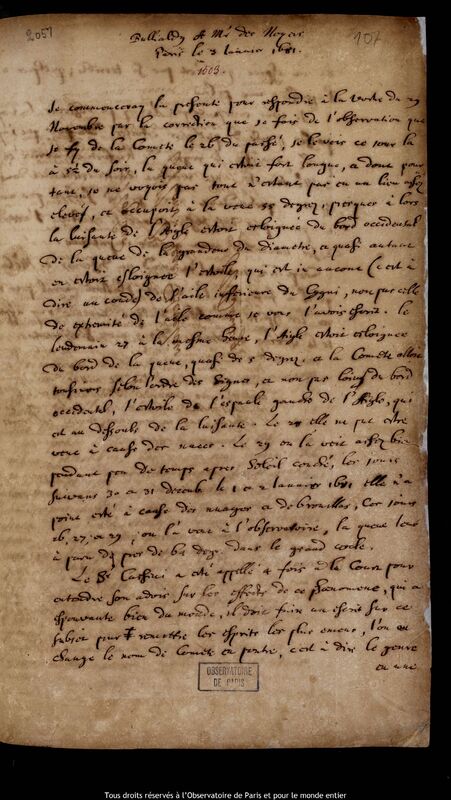 2057
107
Bulialdy A Mr des Noyers
Paris le 3 Ianvier 1681.
1603.
Je commenceray la presente pour respondre à la vostre du 29
Novembre par la correction que je fais de l'observation que
je fis de la Comete le 26 du passé, je la veis ce jour là
à 5h du soir, la queue qui estoit fort longue, et dont pour
tant, je ne voyois pas tout n'estant pas en un lieu assez
eslevé, et occupoit à la veue 55 degrez, presque à lors
la luisante de l'Aigle estoit esloignée du bord occidental
de la queue de la grandeur du diametre, et quasi autant
en estoit esloignée l'estoile, qui est in ancone (c'est à
dire au coude) de l'aile inferieure du Cygni, non pas celle
de extremité de l'aile comme je vous l'avois escrit. Le
lendemain 27 à la mesme heure, l'Aigle estoit esloignée
du bord de la queue, quasi de 5 degrez, et la Comete alloit
tousiours selon l'ordre des Signes, et non pas loing du bord
occidental, l'estoile de l'espaule gauche de l'Aigle, qui
est au dessoubs de la luisante. Le 28 elle ne put estre
veue à cause des nuees. Le 29 on la veit assez bien
pendant peu de temps apres Soleil couché, les jours
suivans 30 et 31 decemb. le 1 et 2 Ianvier 1681 elle n'a
point esté à cause des nuages et de brouillas, Ces jours
26, 27, et 29, on l'a veue à l'observatoire, la queue leur
à paru de pres de 62 deg. dans le grand cercle.
Le Sr Cassini a esté appellé 4 fois à la Cour pour
entendre son advis sur les effects de ce phaenomene, qui a
espouvanté bien du monde, il doit faire un escrit sur ce
subiet pour remettre les esprits les plus emeus, l'on en
change le nom de Comete en partie, c'est à dire le genre
en une
OBSERVATOIRE
DE PARIS
Tous droits réservés à l'Observatoire de Paris et pour le monde entier